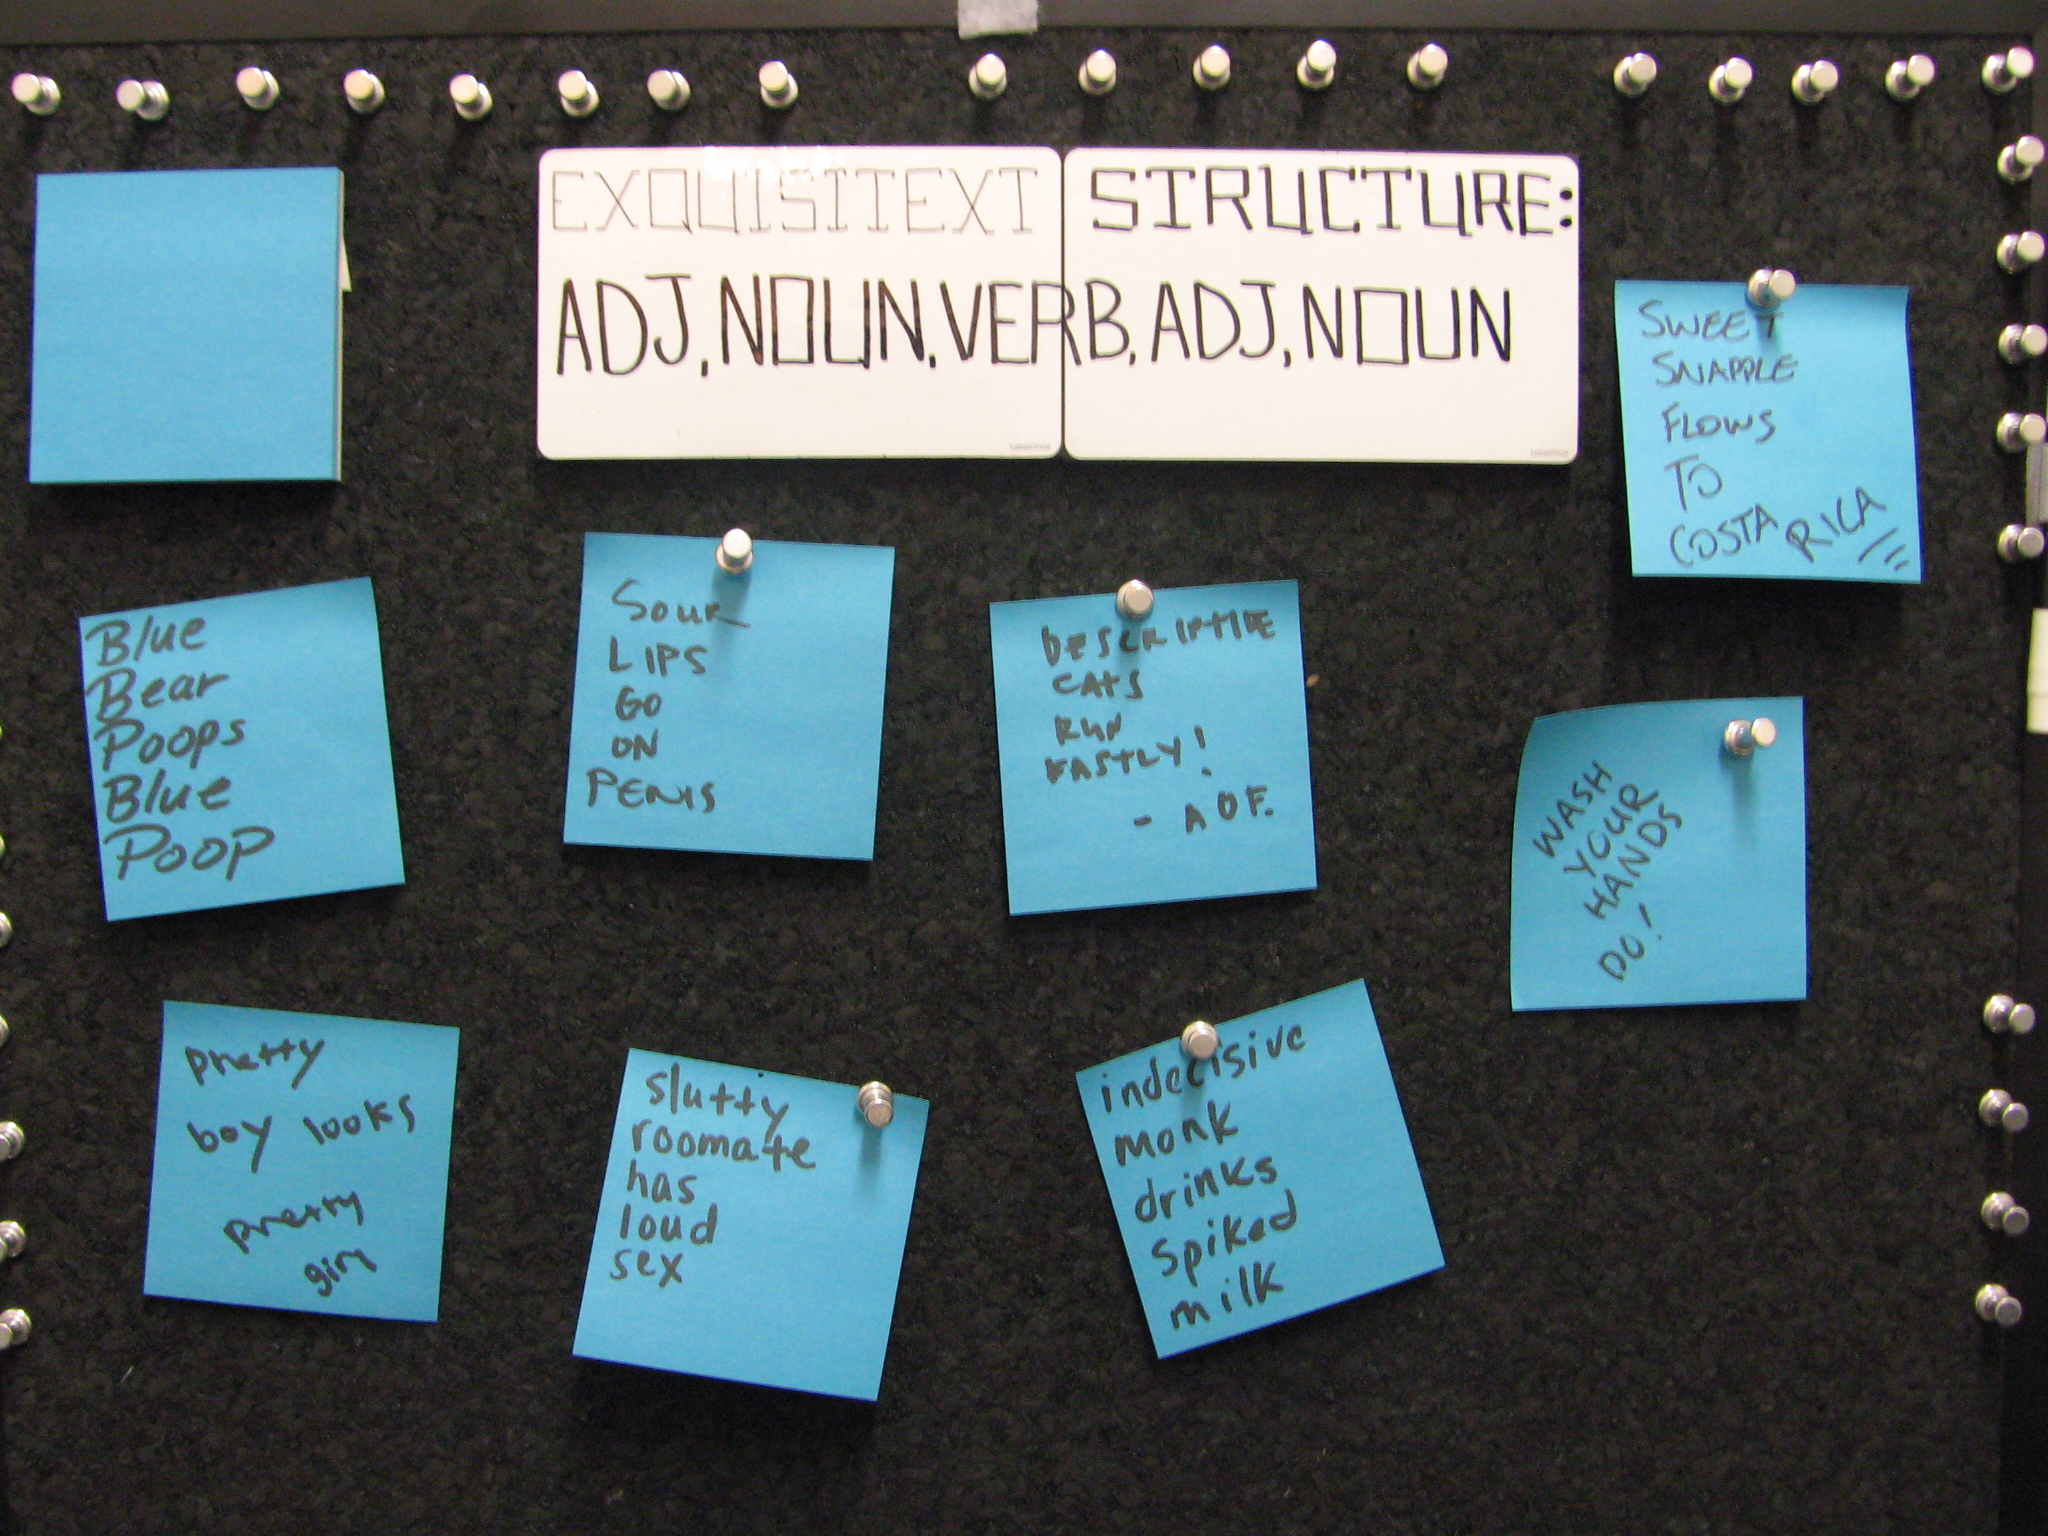 EXQUISITEXT STRUCTURE:
ADJ, NOUN, VERB, ADJ, NOUN
SWEET
SNAPPLE
FLOWS
TO
COSTA RICA!!!
Blue
Bear
Poops
Blue
Poop
SOUR
LIPS
GO
ON
PENIS
DESCRIPTIVE
CATS
RUN
FASTLY!
- A OF.
WASH
YOUR
HANDS
DO!
pretty
boy looks
pretty
girl
slutty
roomate
has
loud
sex
indecisive
monk
drinks
spiked
milk